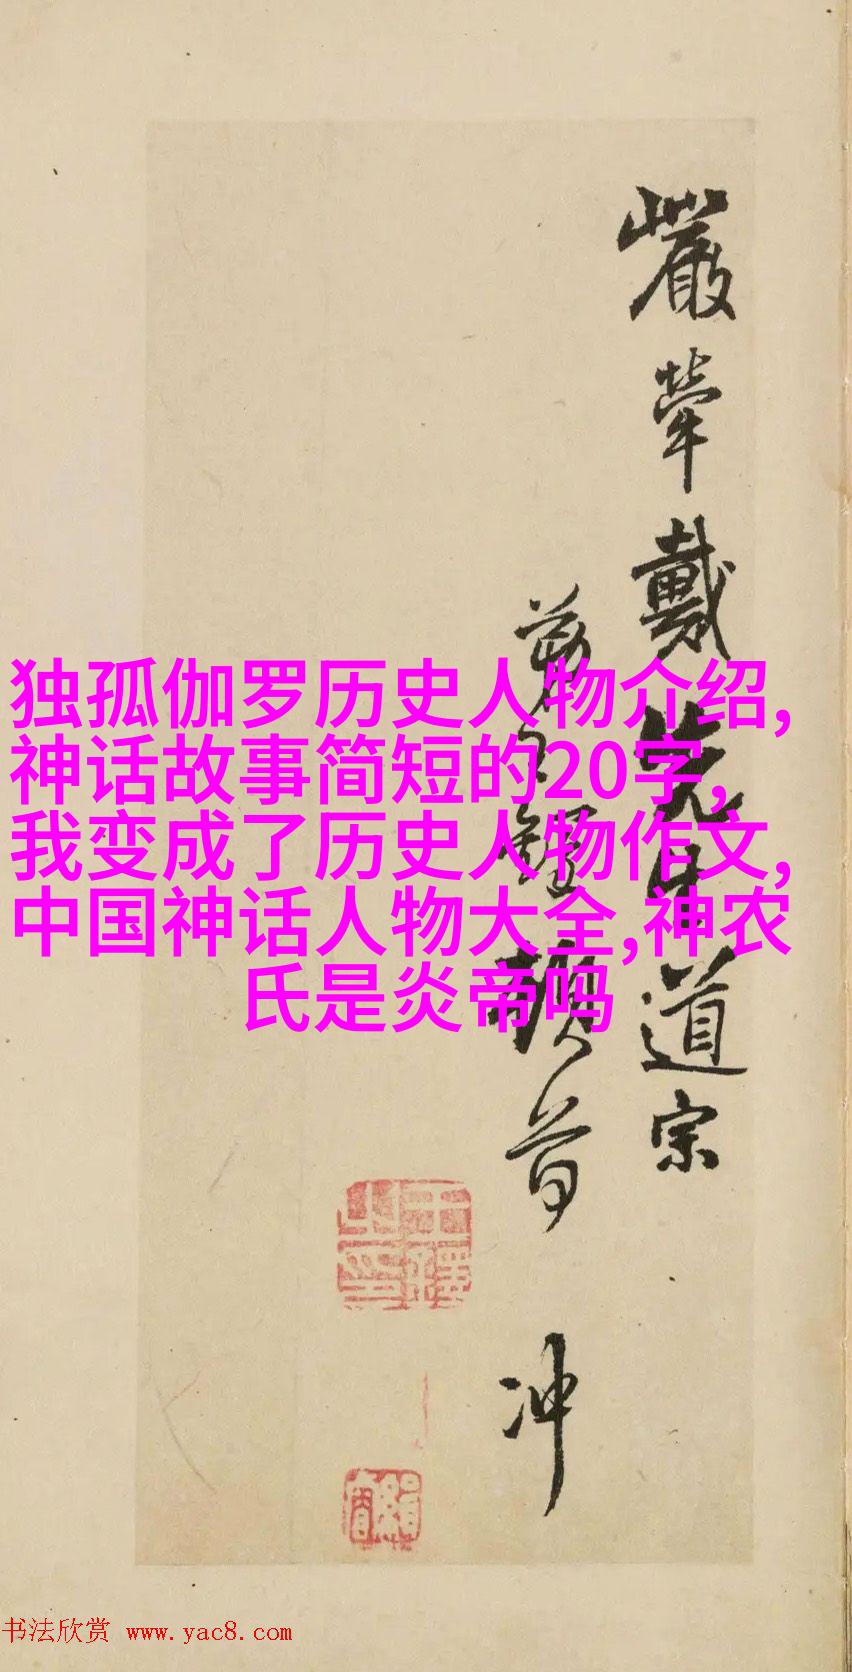 巖犖戴先生道宗
頓首
冲
独孤伽罗历史人物介绍,
神话故事简短的20字,
我变成了历史人物作文,
中国神话人物大全,神农
氏是炎帝吗
书法欣赏 www.yac8.com